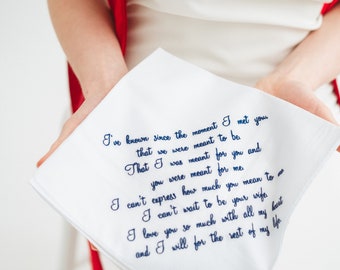 I've known since the moment I met you
that we were meant to be.
That I was meant for you and
you were meant for me.
I can't express how much you mean to me
I can't wait to be your wife
I love you so much with all my heart
and I will for the rest of my life